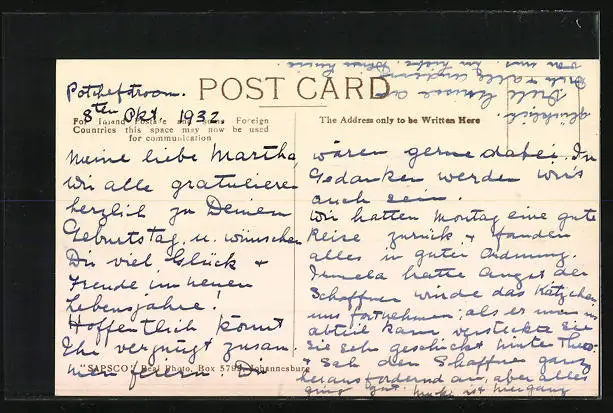 POST CARD
Potchefstroom.
8ten Okt 1932.
For Inland Postage and some Foreign
Countries this space may now be used
for communication
The Address only to be Written Here
Meine liebe Martha,
wir alle gratulieren
herzlich zu Deinem
Geburtstag, u. wünschen
Dir viel Glück +
Freude im neuen
Lebensjahre!
Hoffentlich könnt
Ihr vergnügt zusam-
men feiern. Wir
"SAPSCO" Real Photo, Box 5792, Johannesburg
wären gerne dabei. In
Gedanken werden wir's
auch sein.
Wir hatten Montag eine gute
Reise zurück + fanden
alles in guter Ordnung.
Irmela hatte Angst der
Schaffner würde das Kätzchen
uns fortnehmen; als er uns
abteil kam versteckte sie
sie sehr geschickt hinter
+ sah den Schaffner ganz
herausfordernd an, aber alles
ging gut. ist
glücklich.
Viele Grüsse an
Dich + alle anderen
von uns